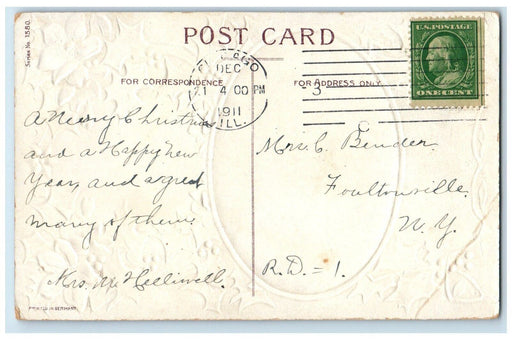 Series No. 1580.
POST CARD
FOR CORRESPONDENCE
FOR ADDRESS ONLY
DEC
21 4 00 PM
1911
ILL.
3
U.S. POSTAGE
ONE CENT
A Merry Christmas
and a Happy new
Year, and a great
many of them.
Mrs. M Helliwell.
Mrs. C. Bender.
Foultonville.
N.Y.
R.D. = 1.
PRINTED IN GERMANY